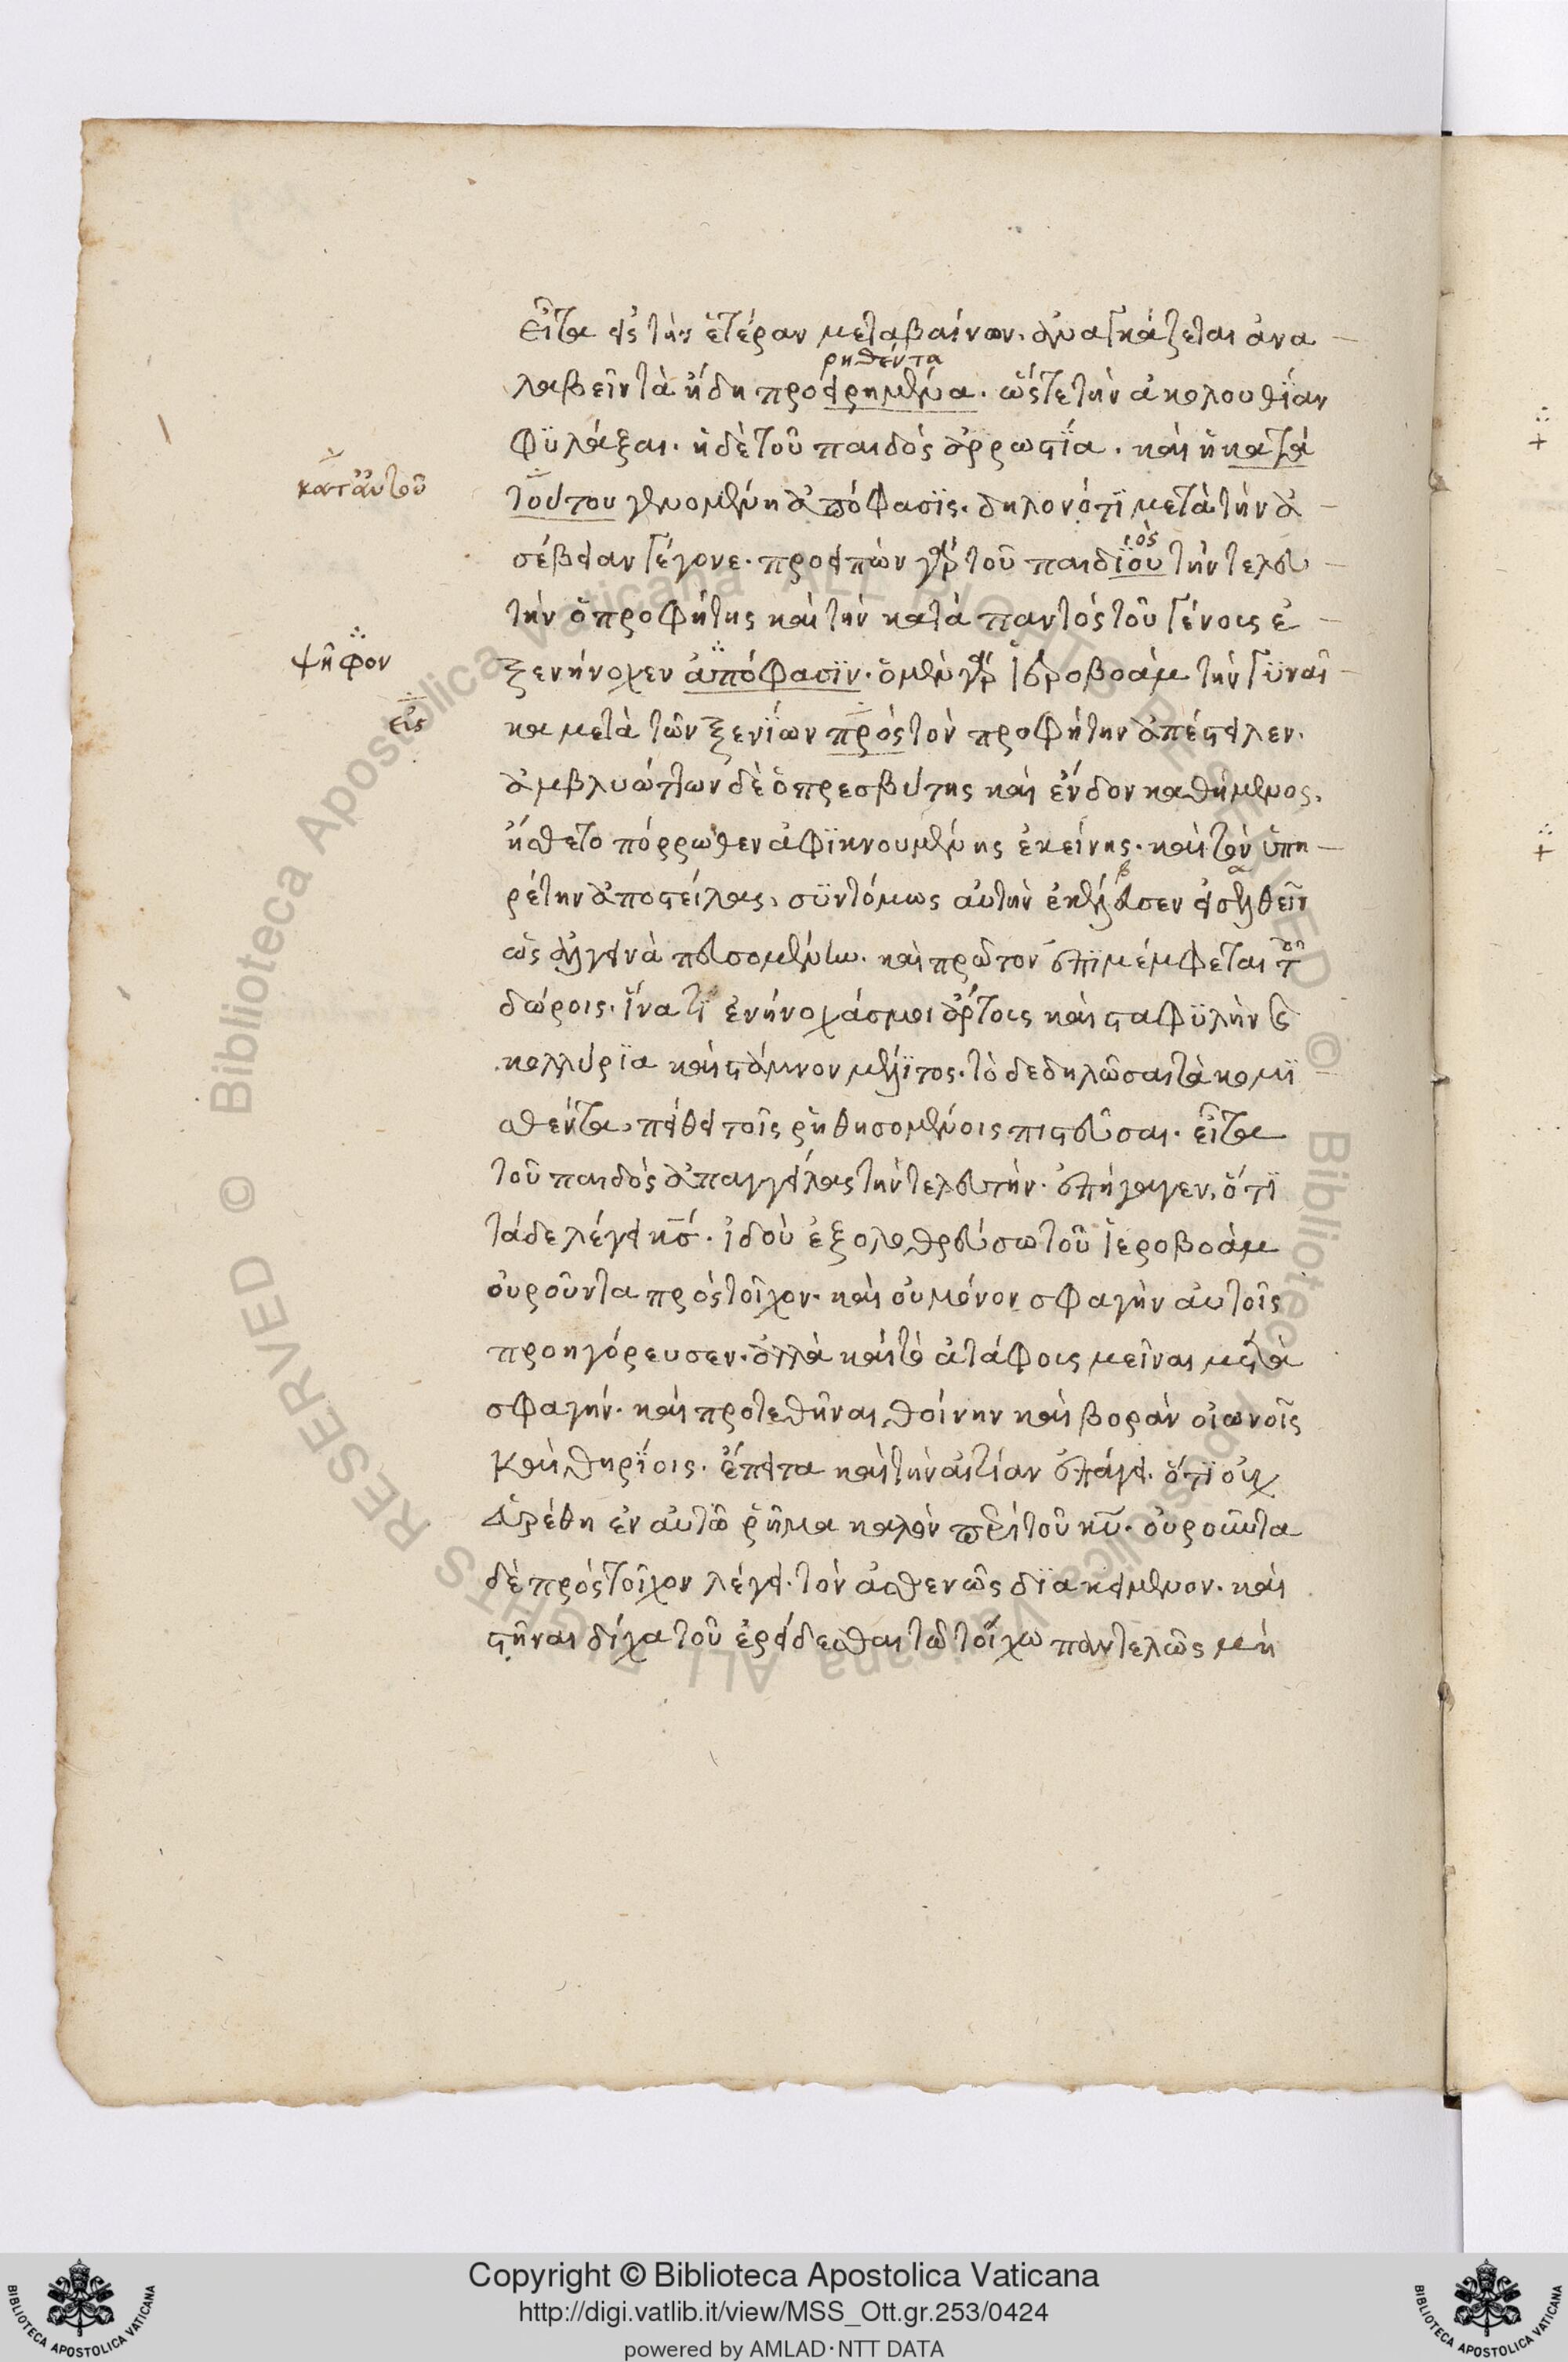 εἶτα εἰς τὴν ἑτέραν μεταβαίνων. ἀναγκάζεται ἀνα
ρηθέντα
λαβεῖν τὰ ἤδη προειρημένα. ὥστε τὴν ἀκολουθΐαν
φϋλάξαι. ἡ δὲ τοῦ παιδὸς ἀρρωστΐα. καὶ ἡ κατὰ
κατ' αὐτοῦ
τούτου γενομένη ἀπόφασϊς. δηλονότϊ μετὰ τὴν ἀ
ιὸς
σέβειαν γέγονε. προειπὼν γὰρ τοῦ παιδΐου τὴν τελευ
τὴν ὁ προφήτης καὶ τὴν κατὰ παντὸς τοῦ γένους ἐ
ψῆφον
ξενήνοχεν ἀπόφασϊν. ὁ μὲν γὰρ ἱεροβοὰμ τὴν γϋναῖ
εἰς
κα μετὰ τῶν ξενΐων πρὸς τὸν προφήτην ἀπέστειλεν.
ἀμβλυώττων δὲ ὁ πρεσβύτης καὶ ἔνδον καθήμενος.
ἤσθετο πόρρωθεν ἀφϊκνουμένης ἐκείνης. καὶ τὸν ὑπη
β α
ρέτην ἀποστείλας. σϋντόμως αὐτὴν ἐκέλευσεν εἰσελθεῖν
ὡς ἀλγεινὰ πευσομένην. καὶ πρῶτον ἐπϊμέμφεται τοῖς
δώροις. ἵνα τΐ ἐνήνοχάς μοι ἄρτους καὶ σταφϋλὴν καὶ
κολλύρϊα καὶ στάμνον μέλϊτος. τὸ δὲ δηλῶσαι τὰ κομϊ
σθέντα, πείθει τοῖς ῥηθησομένοις πιστεῦσαι. εἶτα
τοῦ παιδὸς ἀπαγγείλας τὴν τελευτήν. ἐπήγαγεν, ὅτϊ
τάδε λέγει κς. ἰδοὺ ἐξολοθρεύσω τοῦ ἱεροβοὰμ
οὐροῦντα πρὸς τοῖχον. καὶ οὐ μόνον σφαγὴν αὐτοῖς
προηγόρευσεν. ἀλλὰ καὶ τὸ ἀτάφους μεῖναι μετὰ
σφαγήν. καὶ προτεθῆναι θοίνην καὶ βορὰν οἰωνοῖς
καὶ θηρΐοις. ἔπειτα καὶ τὴν αἰτίαν ἐπάγει. ὅτϊ οὐχ
εὑρέθη ἐν αὐτῷ ῥῆμα καλὸν περὶ τοῦ κυ. οὐροῦντα
δὲ πρὸς τοῖχον λέγει. τὸν ἀσθενῶς δϊακείμενον. καὶ
στῆναι δίχα τοῦ ἐρείδεσθαι τῷ τοίχῳ παντελῶς μὴ
Copyright © Biblioteca Apostolica Vaticana
http://digi.vatlib.it/view/MSS_Ott.gr.253/0424
powered by AMLAD·NTT DATA
BIBLIOTECA APOSTOLICA VATICANA
BIBLIOTECA APOSTOLICA VATICANA
© Biblioteca Apostolica Vaticana ALL RIGHTS RESERVED © Biblioteca Apostolica Vaticana ALL RIGHTS RESERVED